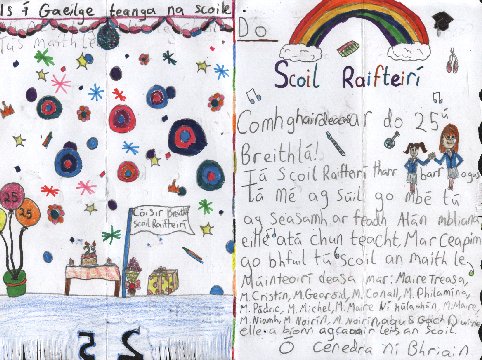 Is í Gaeilge teanga na scoile
Tús maith le
25
25
Cóisir Breithlá
Scoil Raifteirí
25
Do
Scoil Raifteirí
Comhghairdeas ar do 25ú
Breithlá!
Tá Scoil Raifteirí tharr barr agus
tá mé ag súil go mbé tú
ag seasamh ar feadh Alán mbliana
eille atá chun teacht. Mar Ceapim
go bhful tú scoil an maith le
Múinteoirí deasa mar: Maire Treasa,
M. Cristín, M. Gearóid, M. Conall, M. Philamína,
M. Pádric, M. Michel, M. Maire Ní hUlacháin, M. Maire,
M. Niamh, M. Noirín, M. Noirín, agus Gach Duine
elle a bíonn ag cabair leis an scoil.
Ó Cenedra ní Bhriain